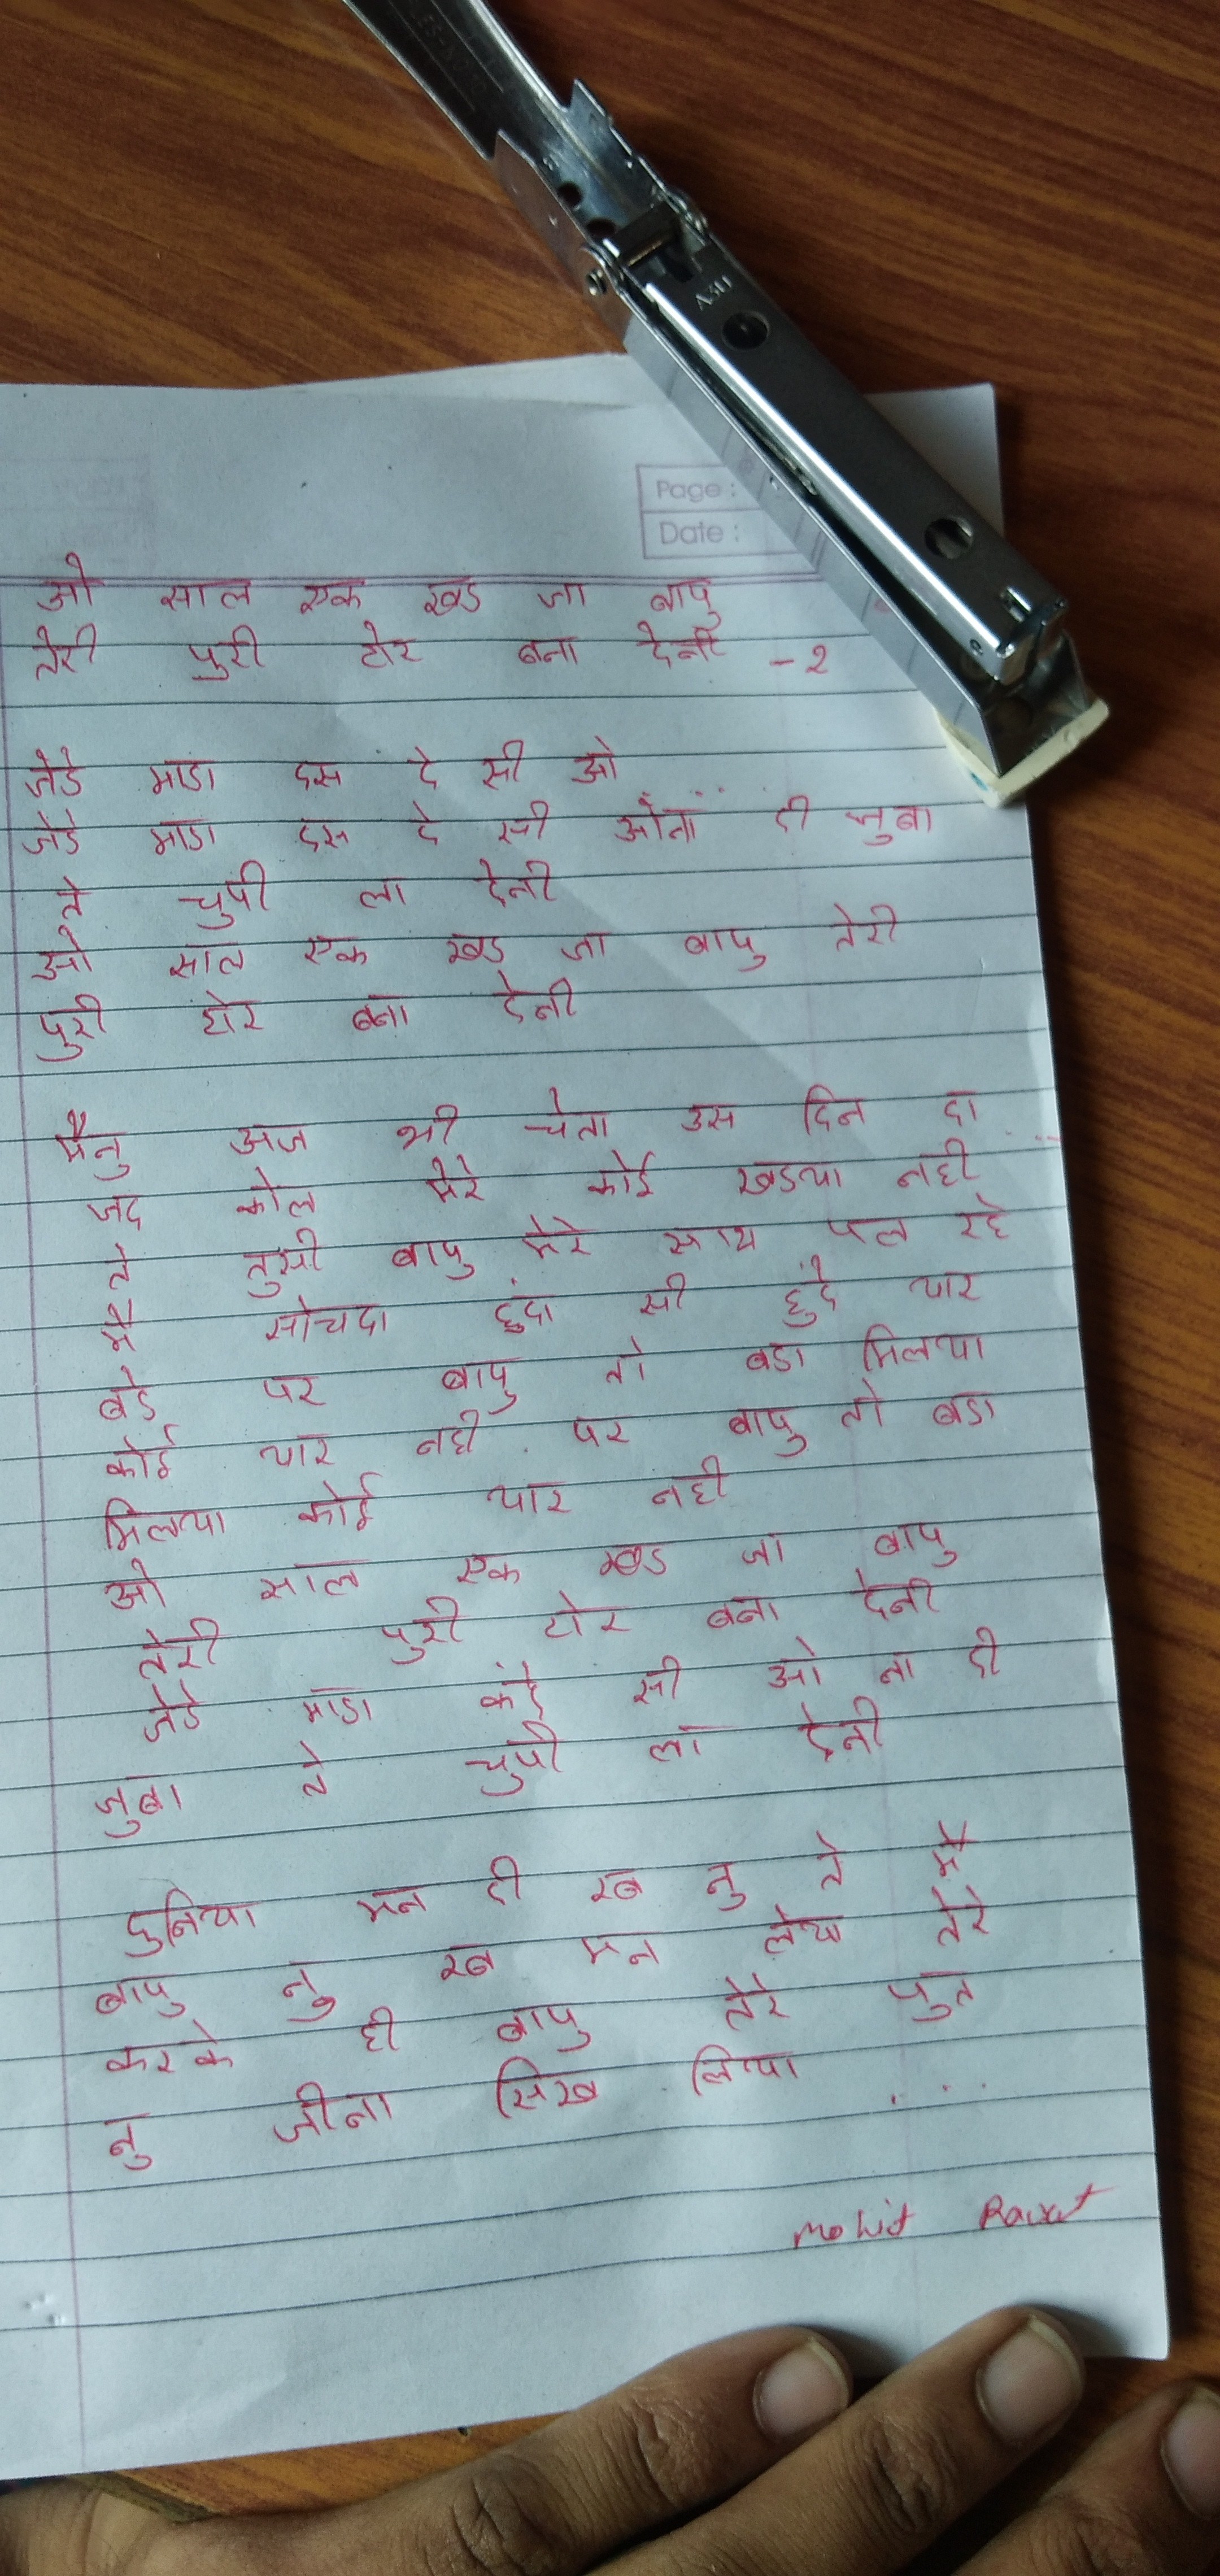 A3U
Page:
Date:
ओ साल एक खड जा बापु
तेरी पुरी टोर बना देनी -2
जेडे माडा दस दे सी ओ
जेडे माडा दस दे सी ओना दी जुबा
ते चुपी ला देनी
ओ साल एक खड जा बापु तेरी
पुरी टोर बना देनी
मैनु अज भी चेता उस दिन दा
जद कोल मेरे कोई खडया नही
ते तुसी बापु मेरे साथ चल रहे
मै सोचदा हुंदा सी हुंदे यार
बडे पर बापु तो बडा मिलया
कोई यार नही पर बापु तो बडा
मिलया कोई यार नही
ओ साल एक खड जा बापु
तेरी पुरी टोर बना देनी
जेडे माडा कंदे सी ओ ना दी
जुबा ते चुपी ला देनी
दुनिया मन दी रब नु ते मै
बापु नु रब मन लेया तेरे
करके ही बापु तेरे पुत
नु जीना सिख लिया
Mohit Rawat